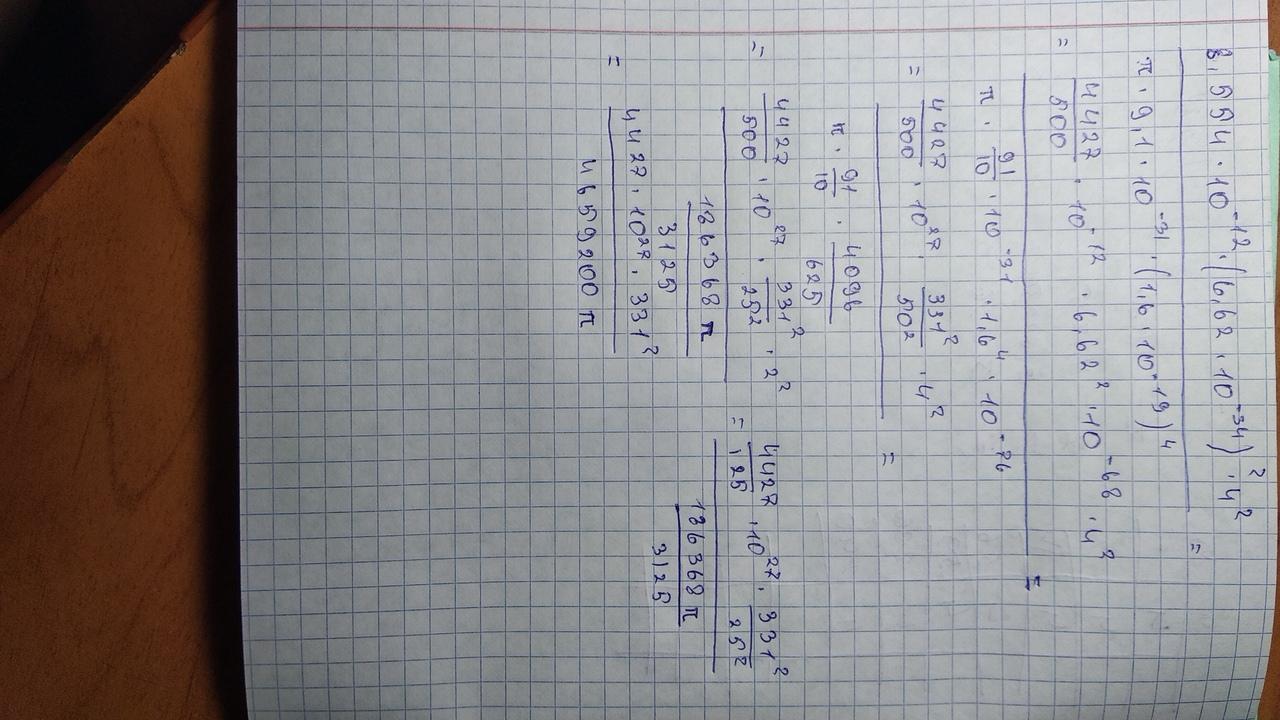 8,854 · 10⁻¹² · (6,62 · 10⁻³⁴)² · 4² =
π · 9,1 · 10⁻³¹ · (1,6 · 10⁻¹⁹)⁴
= 4427/500 · 10⁻¹² · 6,62² · 10⁻⁶⁸ · 4² =
π · 91/10 · 10⁻³¹ · 1,6⁴ · 10⁻⁷⁶
= 4427/500 · 10²⁷ · 331²/50² · 4² =
π · 91/10 · 4096/625
= 4427/500 · 10²⁷ · 331²/25² · 2² = 4427/125 · 10²⁷ · 331²/25²
186368 π/3125 186368 π/3125
= 4427 · 10²⁷ · 331²
4659200 π